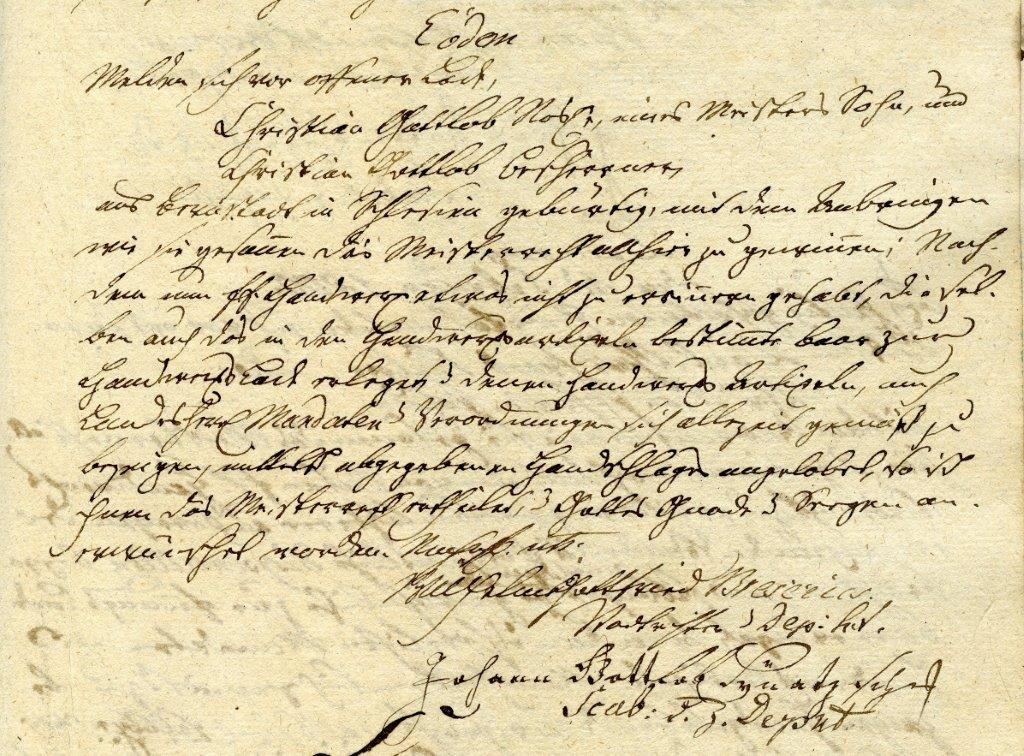 Eodem
Melden sich vor offener Lade,
Christian Gottlob, eines Meisters Sohn, und
Christian Gottlob
aus Bernstadt in Schlesien gebürtig, mit dem Anbringen
wie sie gesonnen das Meisterrecht allhier zu gewinnen; Nach-
dem nun Handwerk etwas nicht zu erinnern gehabt, diesel-
ben auch das in den Handwerksartikeln bestimte baar zur
Handwerks Lade erleget, denen Handwerks Artikeln, auch
Landesherrl Mandaten Verordnungen sich allezeit gemäß zu
bezeigen, mittelst abgegebenen Handschlags angelobet, so ist
ihnen das Meisterrecht ertheilet, Gottes Gnade Seegen an-
erwünschet worden.
Wilhelm Gottfried
Stadtrichter Deput.
Johann Gottlob
Scab: Deput